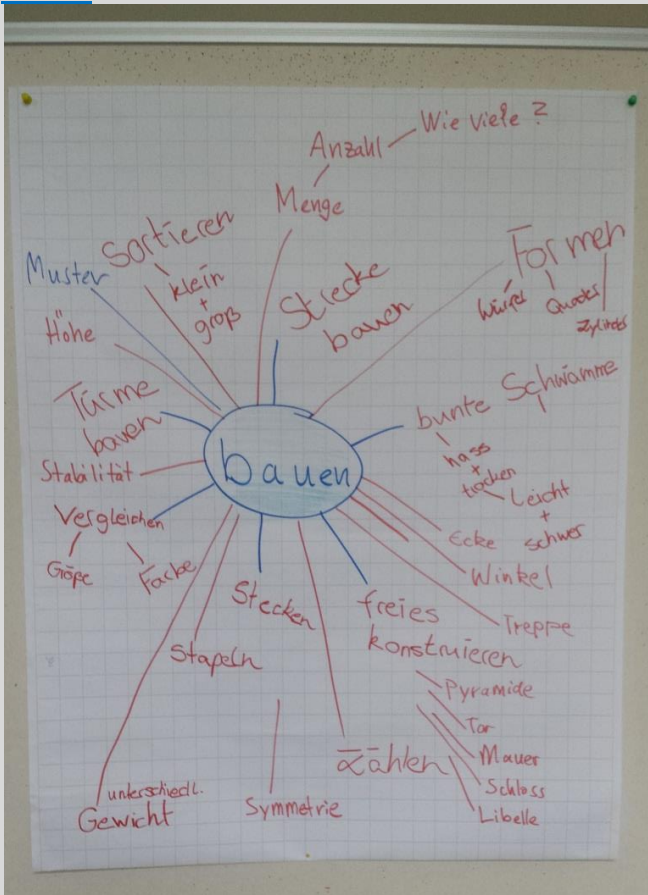 Wie viele?
Anzahl
Menge
Sortieren
klein
+
groß
Muster
Höhe
Strecke
bauen
Formen
Würfel
Quader
Zylinder
Türme
bauen
bunte Schwämme
nass
+
trocken
Leicht
+
schwer
bauen
Stabilität
Vergleichen
Größe
Farbe
Ecke
Winkel
Treppe
Stecken
Stapeln
freies
konstruieren
Pyramide
Tor
Mauer
Schloss
Libelle
Zählen
Symmetrie
unterschiedl.
Gewicht